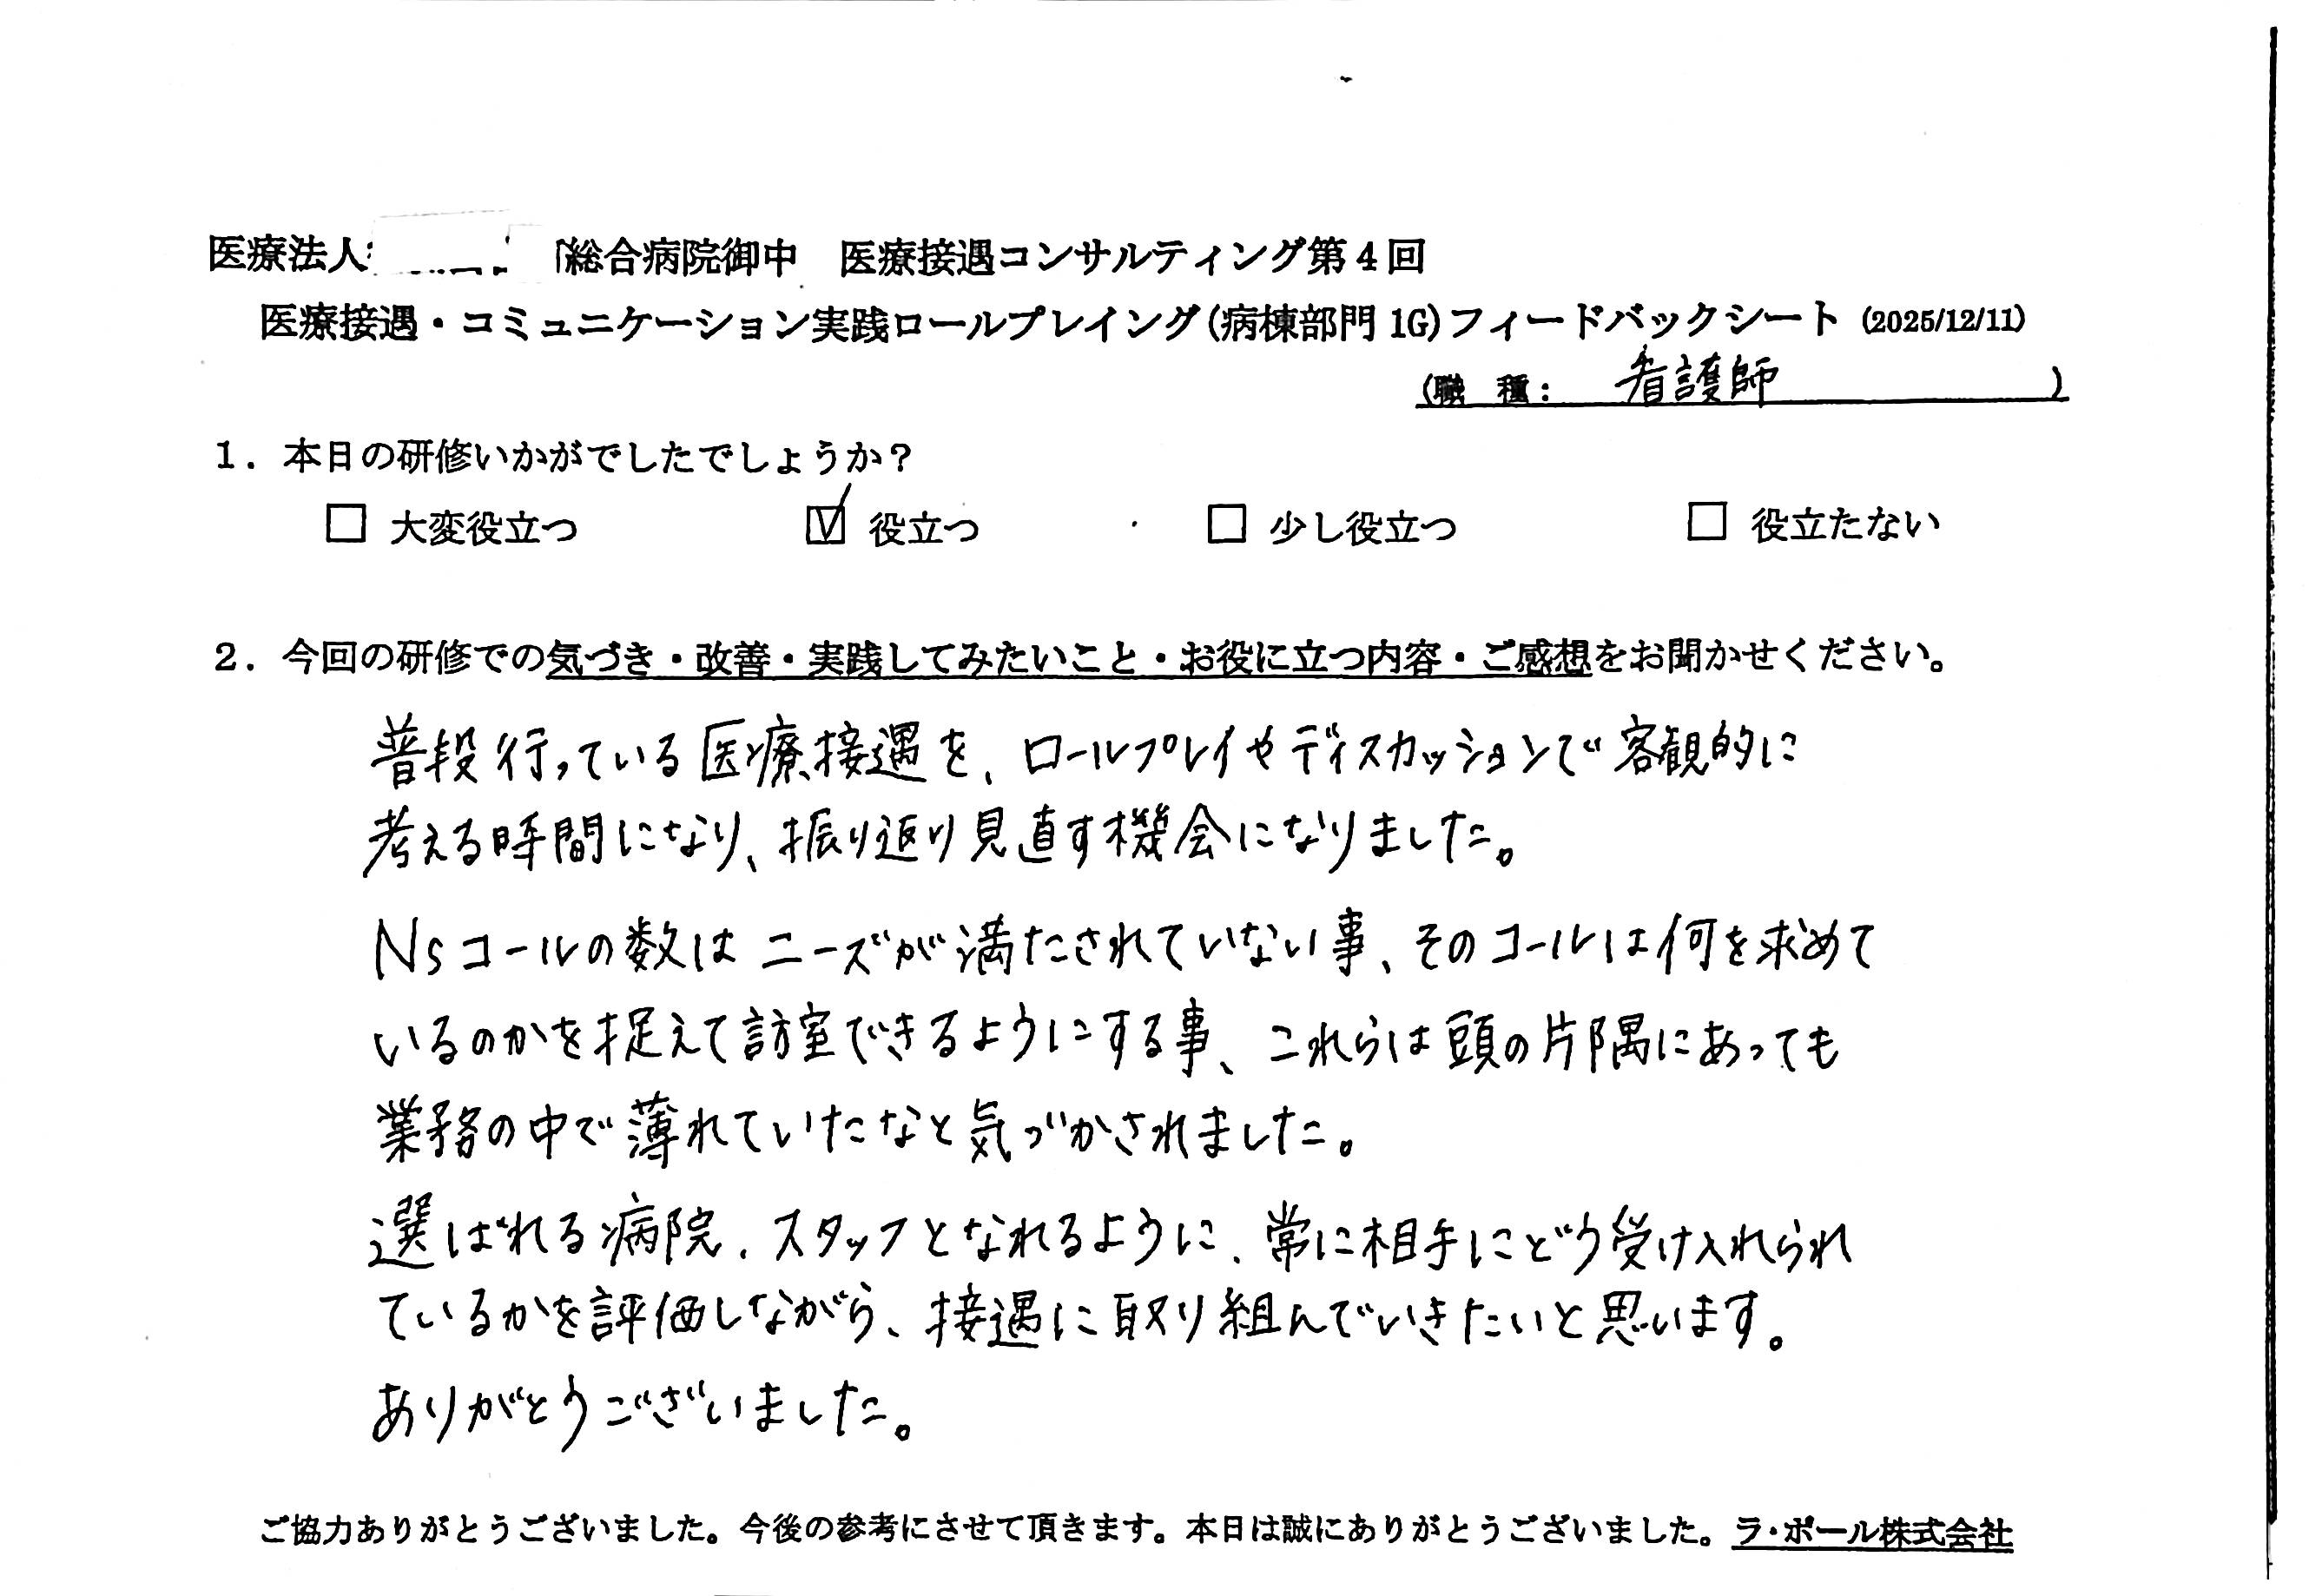 医療法人 総合病院御中　医療接遇コンサルティング第４回
医療接遇・コミュニケーション実践ロールプレイング(病棟部門 1G)フィードバックシート (2025/12/11)
(職　種：　看護師　)
１．本日の研修いかがでしたでしょうか？
□ 大変役立つ　☑ 役立つ　□ 少し役立つ　□ 役立たない
２．今回の研修での気づき・改善・実践してみたいこと・お役に立つ内容・ご感想をお聞かせください。
普段行っている医療接遇を、ロールプレイやディスカッションで客観的に
考える時間になり、振り返り見直す機会になりました。
Nsコールの数はニーズが満たされていない事、そのコールは何を求めて
いるのかを捉えて訪室できるようにする事、これらは頭の片隅にあっても
業務の中で薄れていたなと気づかされました。
選ばれる病院、スタッフとなれるように、常に相手にどう受け入れられ
ているかを評価しながら、接遇に取り組んでいきたいと思います。
ありがとうございました。
ご協力ありがとうございました。今後の参考にさせて頂きます。本日は誠にありがとうございました。ラ・ポール株式会社